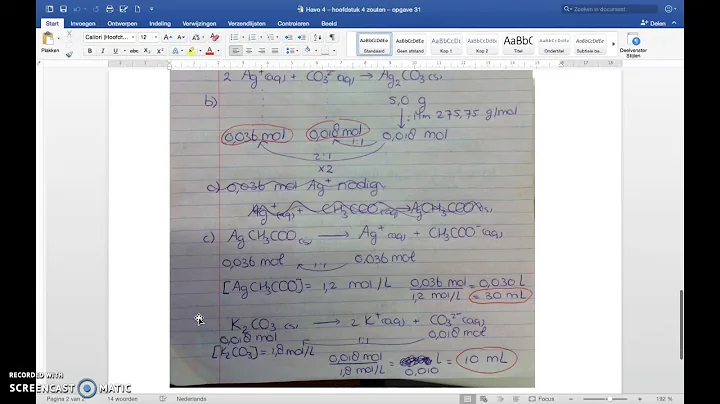 Havo 4 – hoofdstuk 4 zouten – opgave 31
Zoeken in document
Start Invoegen Ontwerpen Indeling Verwijzingen Verzendlijsten Controleren Beeld
Delen
Plakken
Calibri (Hoofdt... 12
AaBbCcDdEe AaBbCcDdEe AaBbCcDc AaBbCcDdEe AaBb( AaBbCcDdEe AaBbCcDdEe
Standaard Geen afstand Kop 1 Kop 2 Titel Ondertitel Subtiele be...
Deelvenster
Stijlen
2 Ag⁺(aq) + CO₃²⁻(aq) → Ag₂CO₃(s)
b) 5,0 g
:Mm 275,75 g/mol
0,036 mol 0,018 mol 1:1 0,018 mol
2:1
x2
c) 0,036 mol Ag⁺ nodig
Ag⁺(aq) + CH₃COO⁻(aq) → AgCH₃COO(s)
c) AgCH₃COO(s) → Ag⁺(aq) + CH₃COO⁻(aq)
0,036 mol 1:1 0,036 mol
[AgCH₃COO] = 1,2 mol/L 0,036 mol / 1,2 mol/L = 0,030 L
= 30 mL
K₂CO₃(s) → 2 K⁺(aq) + CO₃²⁻(aq)
0,018 mol 1:1 0,018 mol
[K₂CO₃] = 1,8 mol/L 0,018 mol / 1,8 mol/L = 0,010 L = 10 mL
RECORDED WITH
SCREENCAST MATIC
Pagina 2 van 2 14 woorden Nederlands 192 %